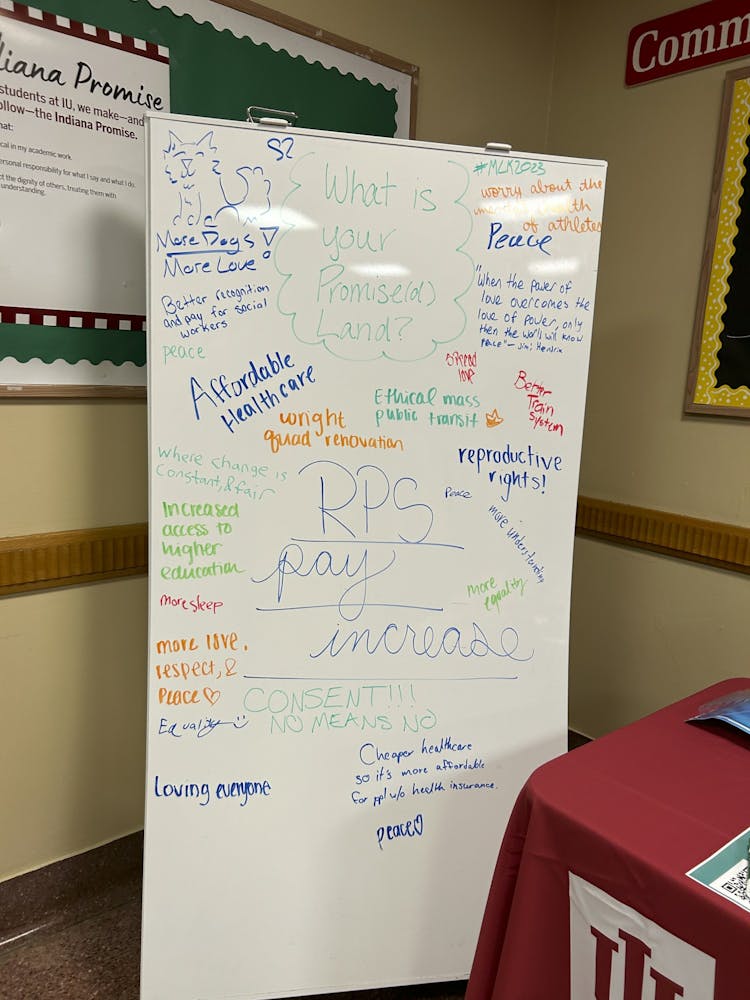 iana Promise
students at IU, we make—and
ollow—the Indiana Promise.
hat:
cal in my academic work.
ersonal responsibility for what I say and what I do.
ct the dignity of others, treating them with
understanding.
Comm
What is
your
Promise(d)
Land?
More Dogs
More Love!
#MLK2023
worry about the
of athletes
Peace
"When the power of
love overcomes the
love of power, only
then the world will know
peace" - Jimi Hendrix
Better recognition
and pay for social
workers
peace
Affordable
Healthcare
spread
love
Ethical mass
public transit
Better
Train
System
wright
quad renovation
reproductive
rights!
Where change is
Constant, & fair
RPS
pay
increase
Peace
more understanding
Increased
access to
higher
education
more equality
more sleep
more love,
respect, &
Peace ♡
CONSENT!!!
NO MEANS NO
Equality :)
Cheaper healthcare
so it's more affordable
for ppl w/o health insurance.
Loving everyone
peace♡